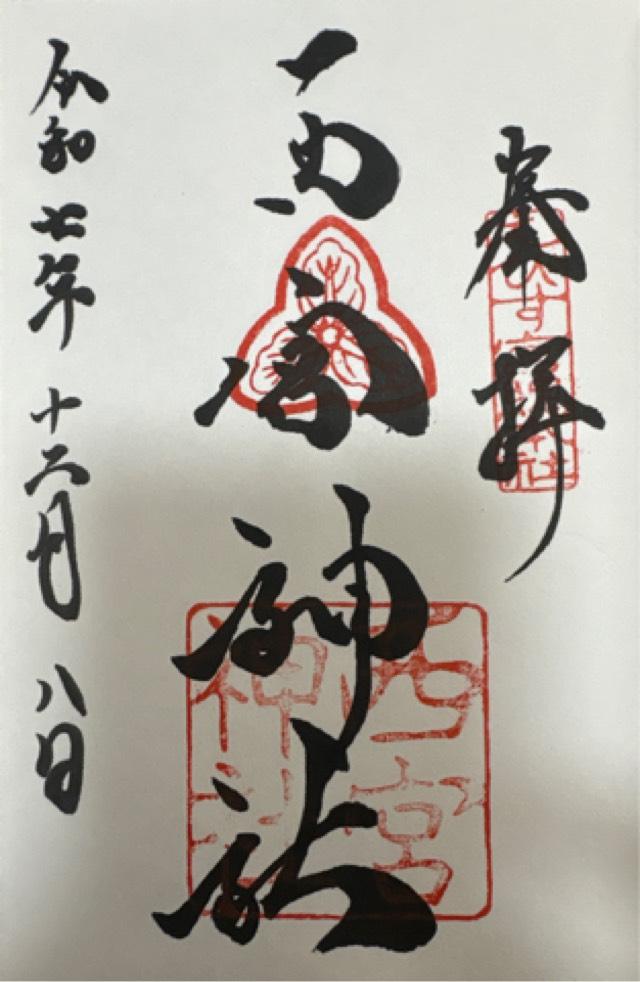 奉拝
西宮神社
西宮神社
令和七年十二月八日